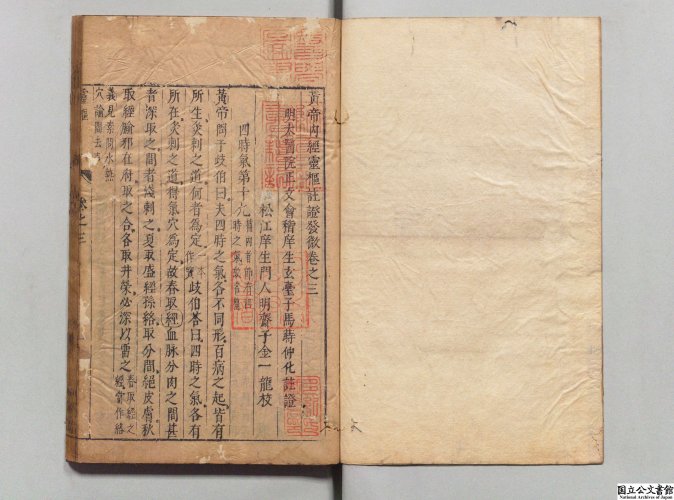 黃帝內經靈樞註證發微卷之三
明太醫院正文會稽庠生玄臺子馬蒔仲化註證
松江庠生門人明齋子金一龍校
四時氣第十九
黃帝問于歧伯曰夫四時之氣各不同形百病之起皆有
所生灸刺之道何者爲定 一本作寶 歧伯荅曰四時之氣各有
所在灸刺之道得氣穴爲定故春取經血脉分肉之間甚
者深取之間者淺刺之夏取盛經孫絡取分間絕皮膚秋
取經腧邪在府取之合冬取井滎必深以畱之 春取經之經當作絡
義見素問水熱
穴論
靈樞
卷之三
国立公文書館
National Archives of Japan